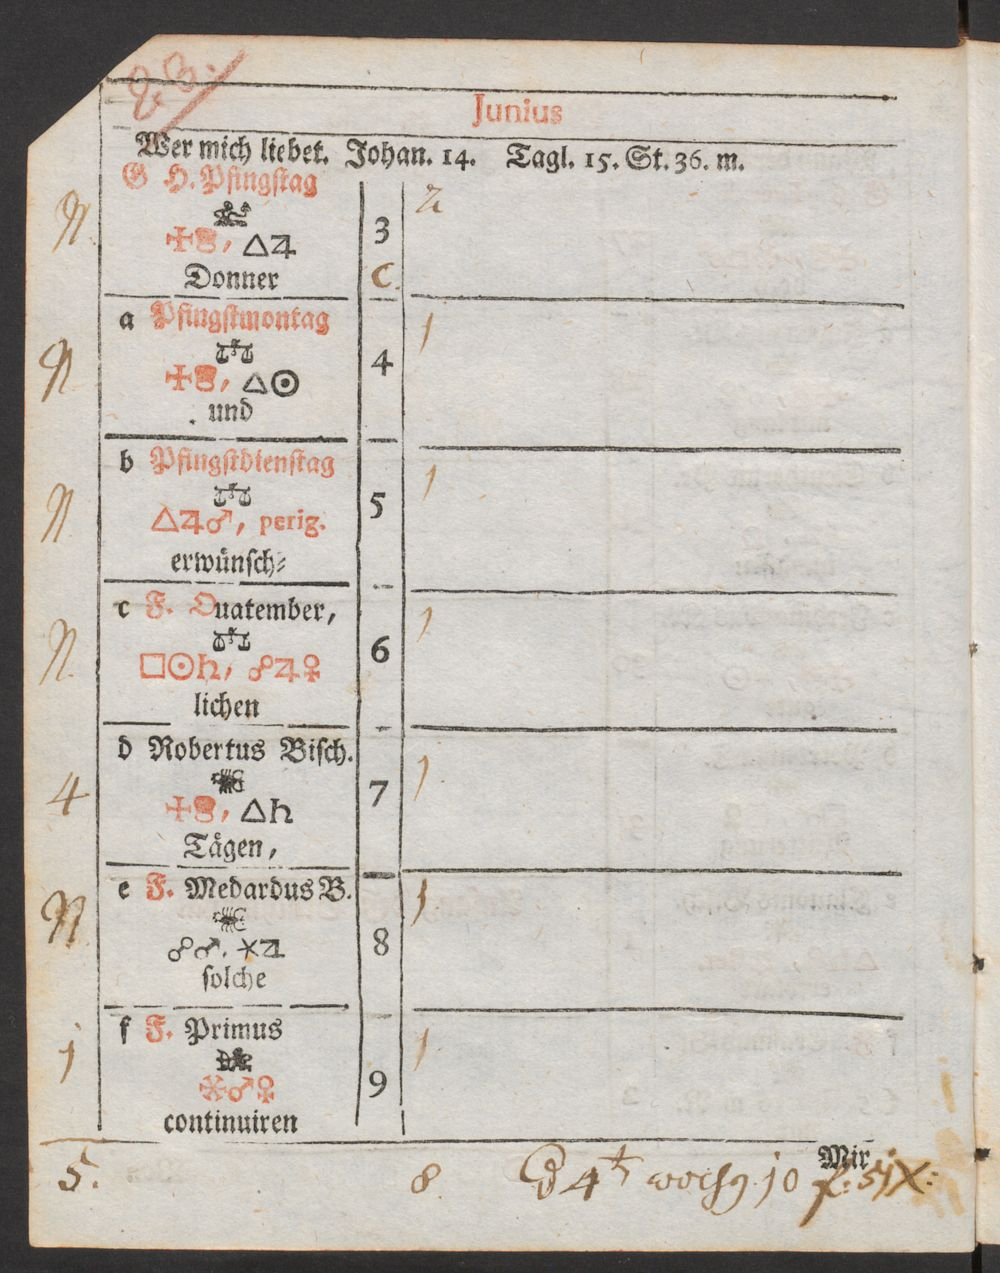 23.
Junius
Wer mich liebet. Johan. 14. Tagl. 15. St. 36. m.
G H. Pfingstag
N 3 2
△♃
Donner C
a Pfingstmontag 1
N 4
△☉
und
b Pfingstdienstag 1
N 5
△♃♂, perig.
erwünsch⸗
c F. Quatember, 1
N 6
□☉♄, ☍♃♀
lichen
d Robertus Bisch. 1
4 7
△♄
Tägen,
e F. Medardus B. 1
N 8
☍♂. ⚹♃
solche
f F. Primus 1
j 9
♂♀
continuiren
Mir
5. 8. 4t